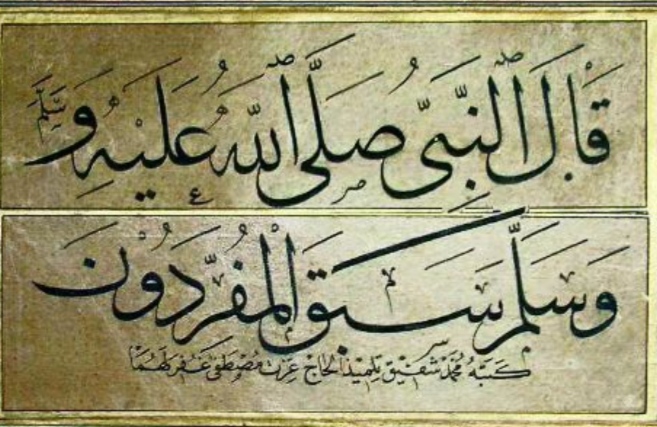 قَالَ النَّبِيُّ صَلَّى اللهُ عَلَيْهِ وَسَلَّمَ
وَسَلَّمَ سَبَقَ الْمُفَرِّدُونَ
كتبه محمد شفيق تلميذ الحاج عزت مصطفى غفر لهما